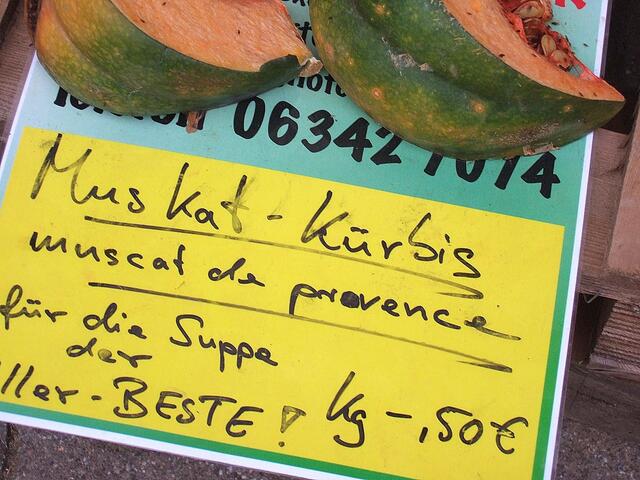 Telefon 06342 7074
Muskat-Kürbis
muscat de provence
für die Suppe
der
aller-BESTE! kg -,50€